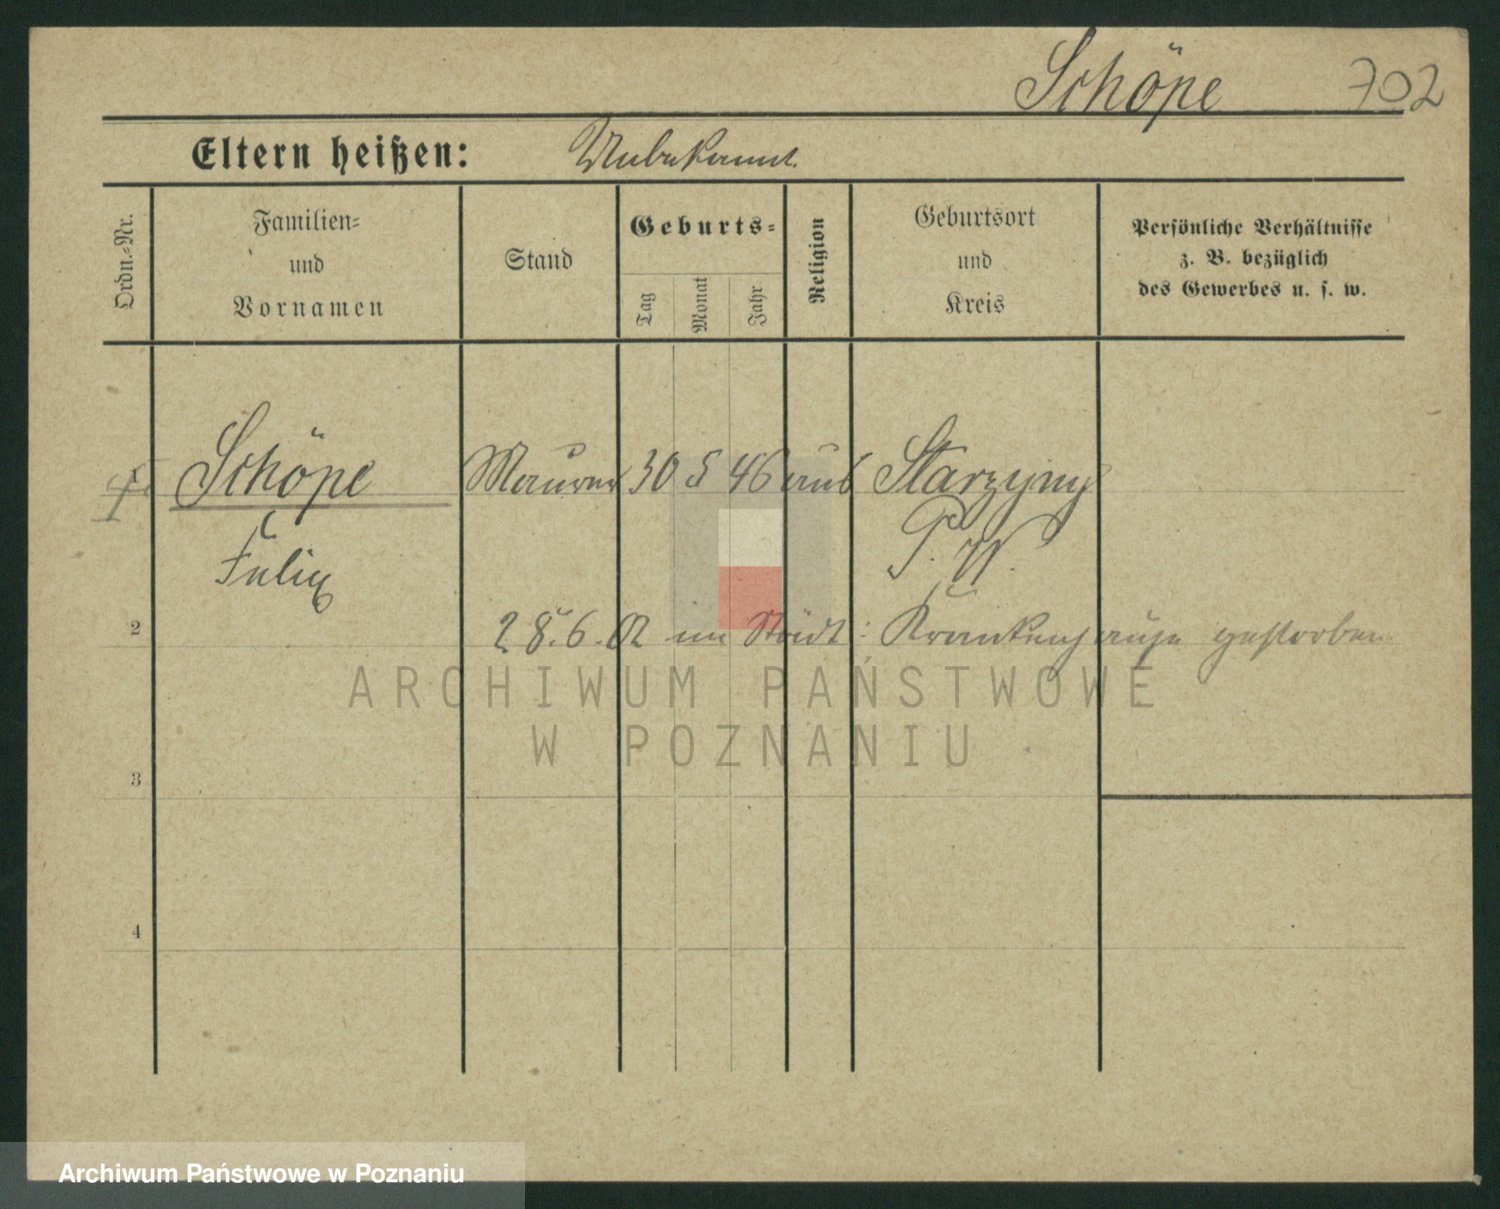 Schöpe 702
Eltern heißen: Unbekannt.
Ordn.-Nr.
Familien-
und
Vornamen
Stand
Geburts-
Tag
Monat
Jahr
Religion
Geburtsort
und
Kreis
Persönliche Verhältnisse
z. B. bezüglich
des Gewerbes u. s. w.
Schöpe Maurer 30 5 46 Starzyny
P. W.
2 28.6.02 im Städt: Krankenhause gestorben
ARCHIWUM PAŃSTWOWE
W POZNANIU
3
4
Archiwum Państwowe w Poznaniu